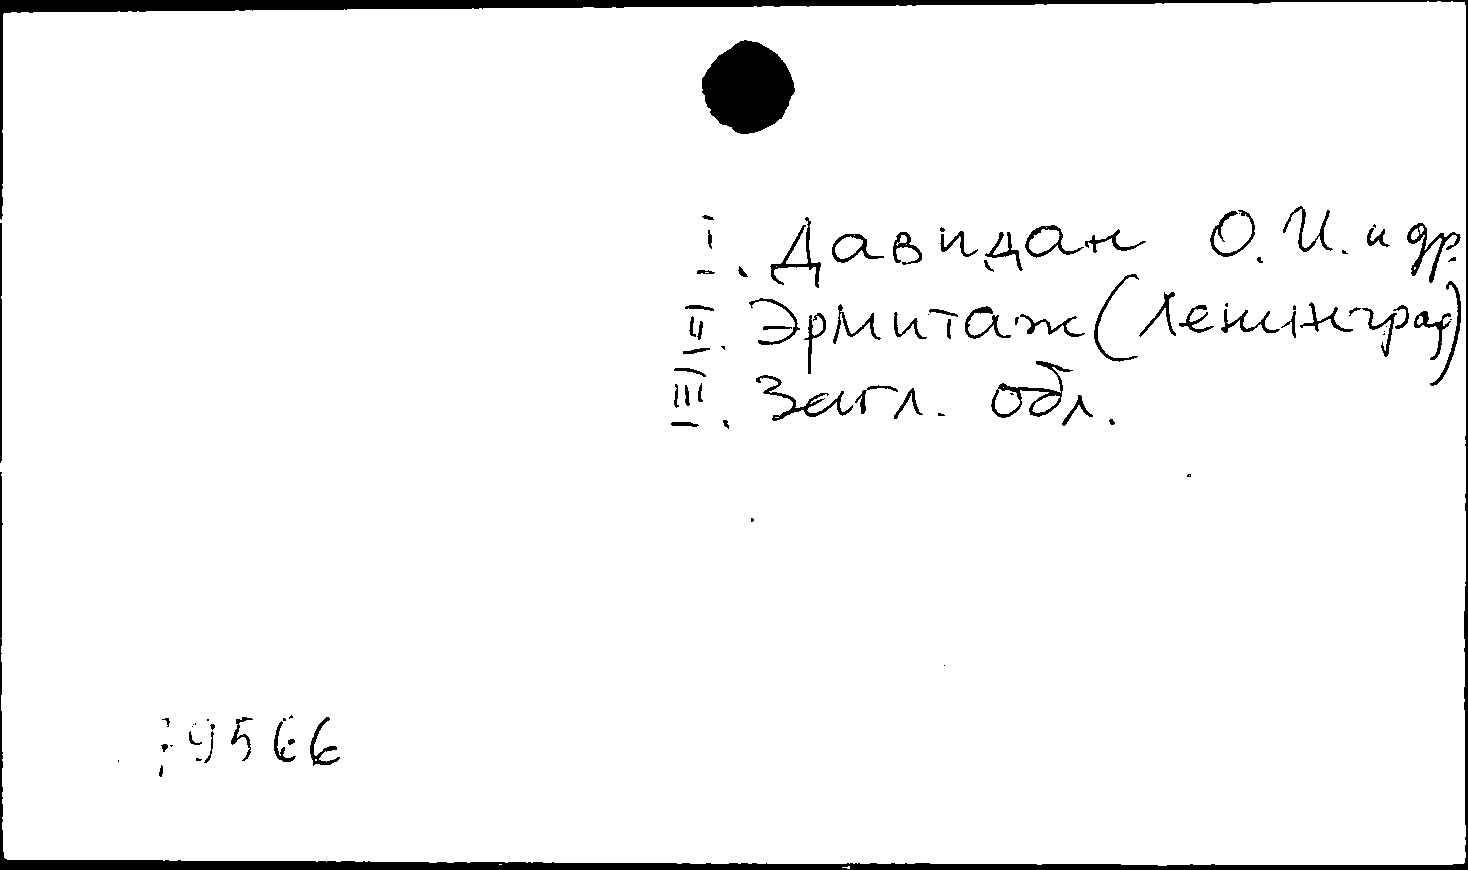 I. Давидан О.И. и др.
II. Эрмитаж (Ленинград)
III. Загл. обл.